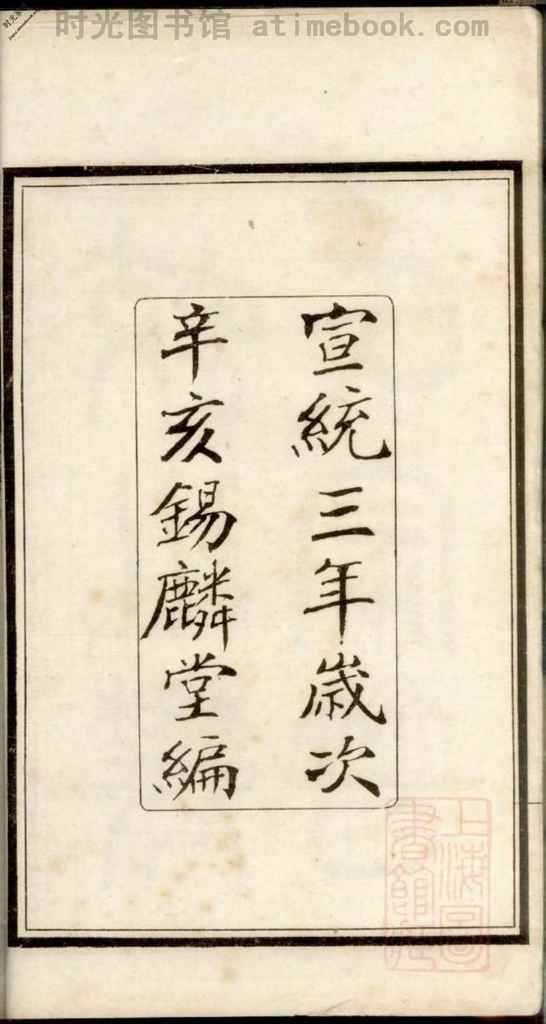 时光图书馆 atimebook.com
宣統三年歲次
辛亥錫麟堂編
上海圖
書館藏